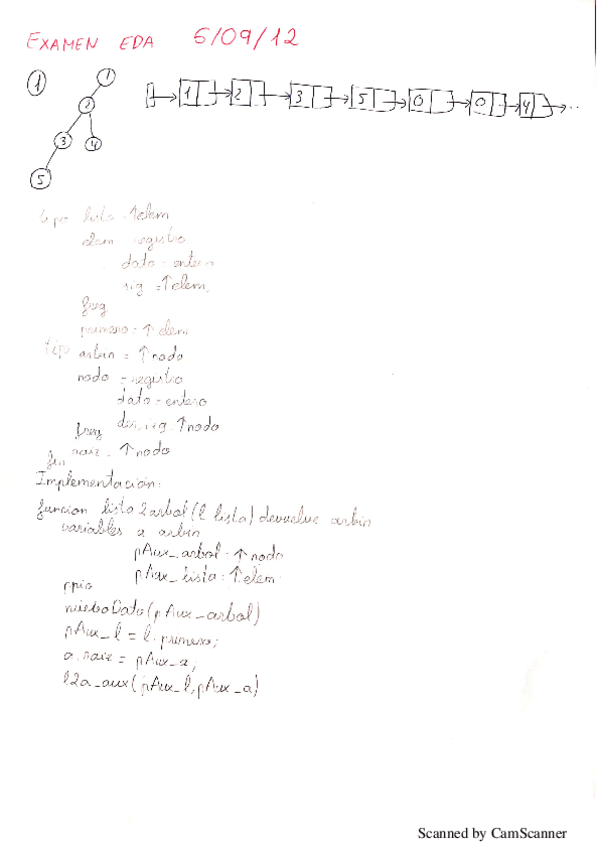 EXAMEN EDA 5/09/12
1
1 2 3 5 0 0 4 ...
1
2
3 4
5
tipo lista = ↑elem
elem = registro
dato = entero
sig = ↑elem
freg
primero = ↑elem
tipo arbin = ↑nodo
nodo = registro
dato = entero
freg der, izq = ↑nodo
fin raiz = ↑nodo
Implementación:
funcion lista2arbol(l lista) devuelve arbin
variables a arbin
pAux_arbol = ↑nodo
pAux_lista = ↑elem
ppio
nuevoDato(pAux_arbol)
pAux_l = l.primero;
a.raiz = pAux_a;
l2a_aux(pAux_l, pAux_a)
Scanned by CamScanner